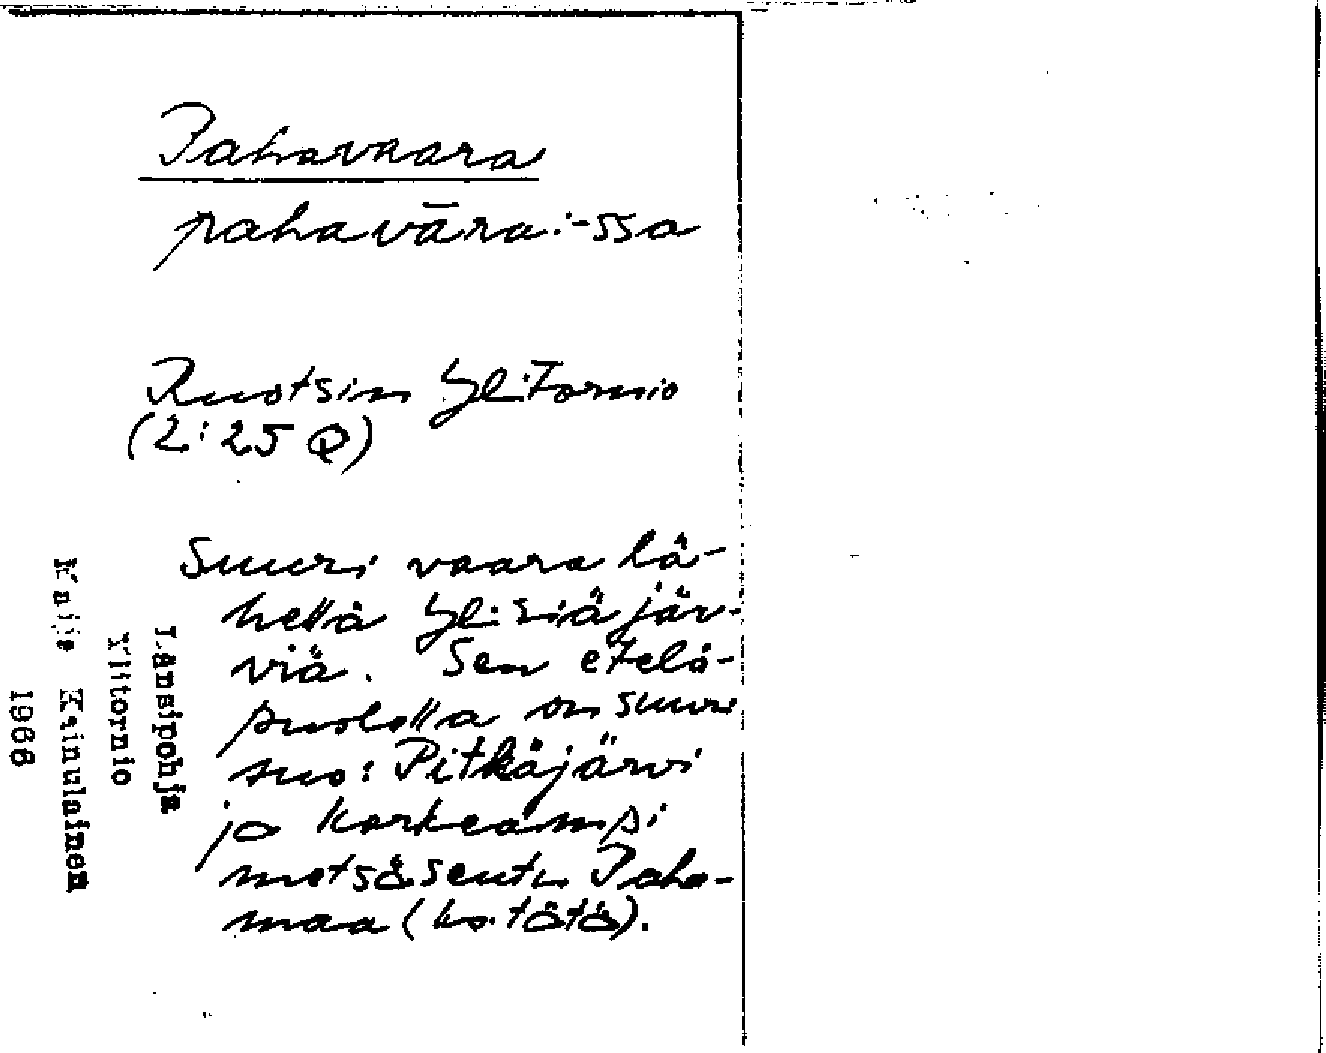 Pahavaara
pahavāra: -ssa
Ruotsin Ylitornio
(2:25 Q)
Suuri vaara lä-
hellä Yli-siäjär-
viä. Sen etelä-
puolella on suuri
suo: Pitkäjärvi
ja korkeampi
metsäseutu Paha-
maa (ks. tätä).
Länsipohja
Ylitornio
Maija Kainulainen
1966